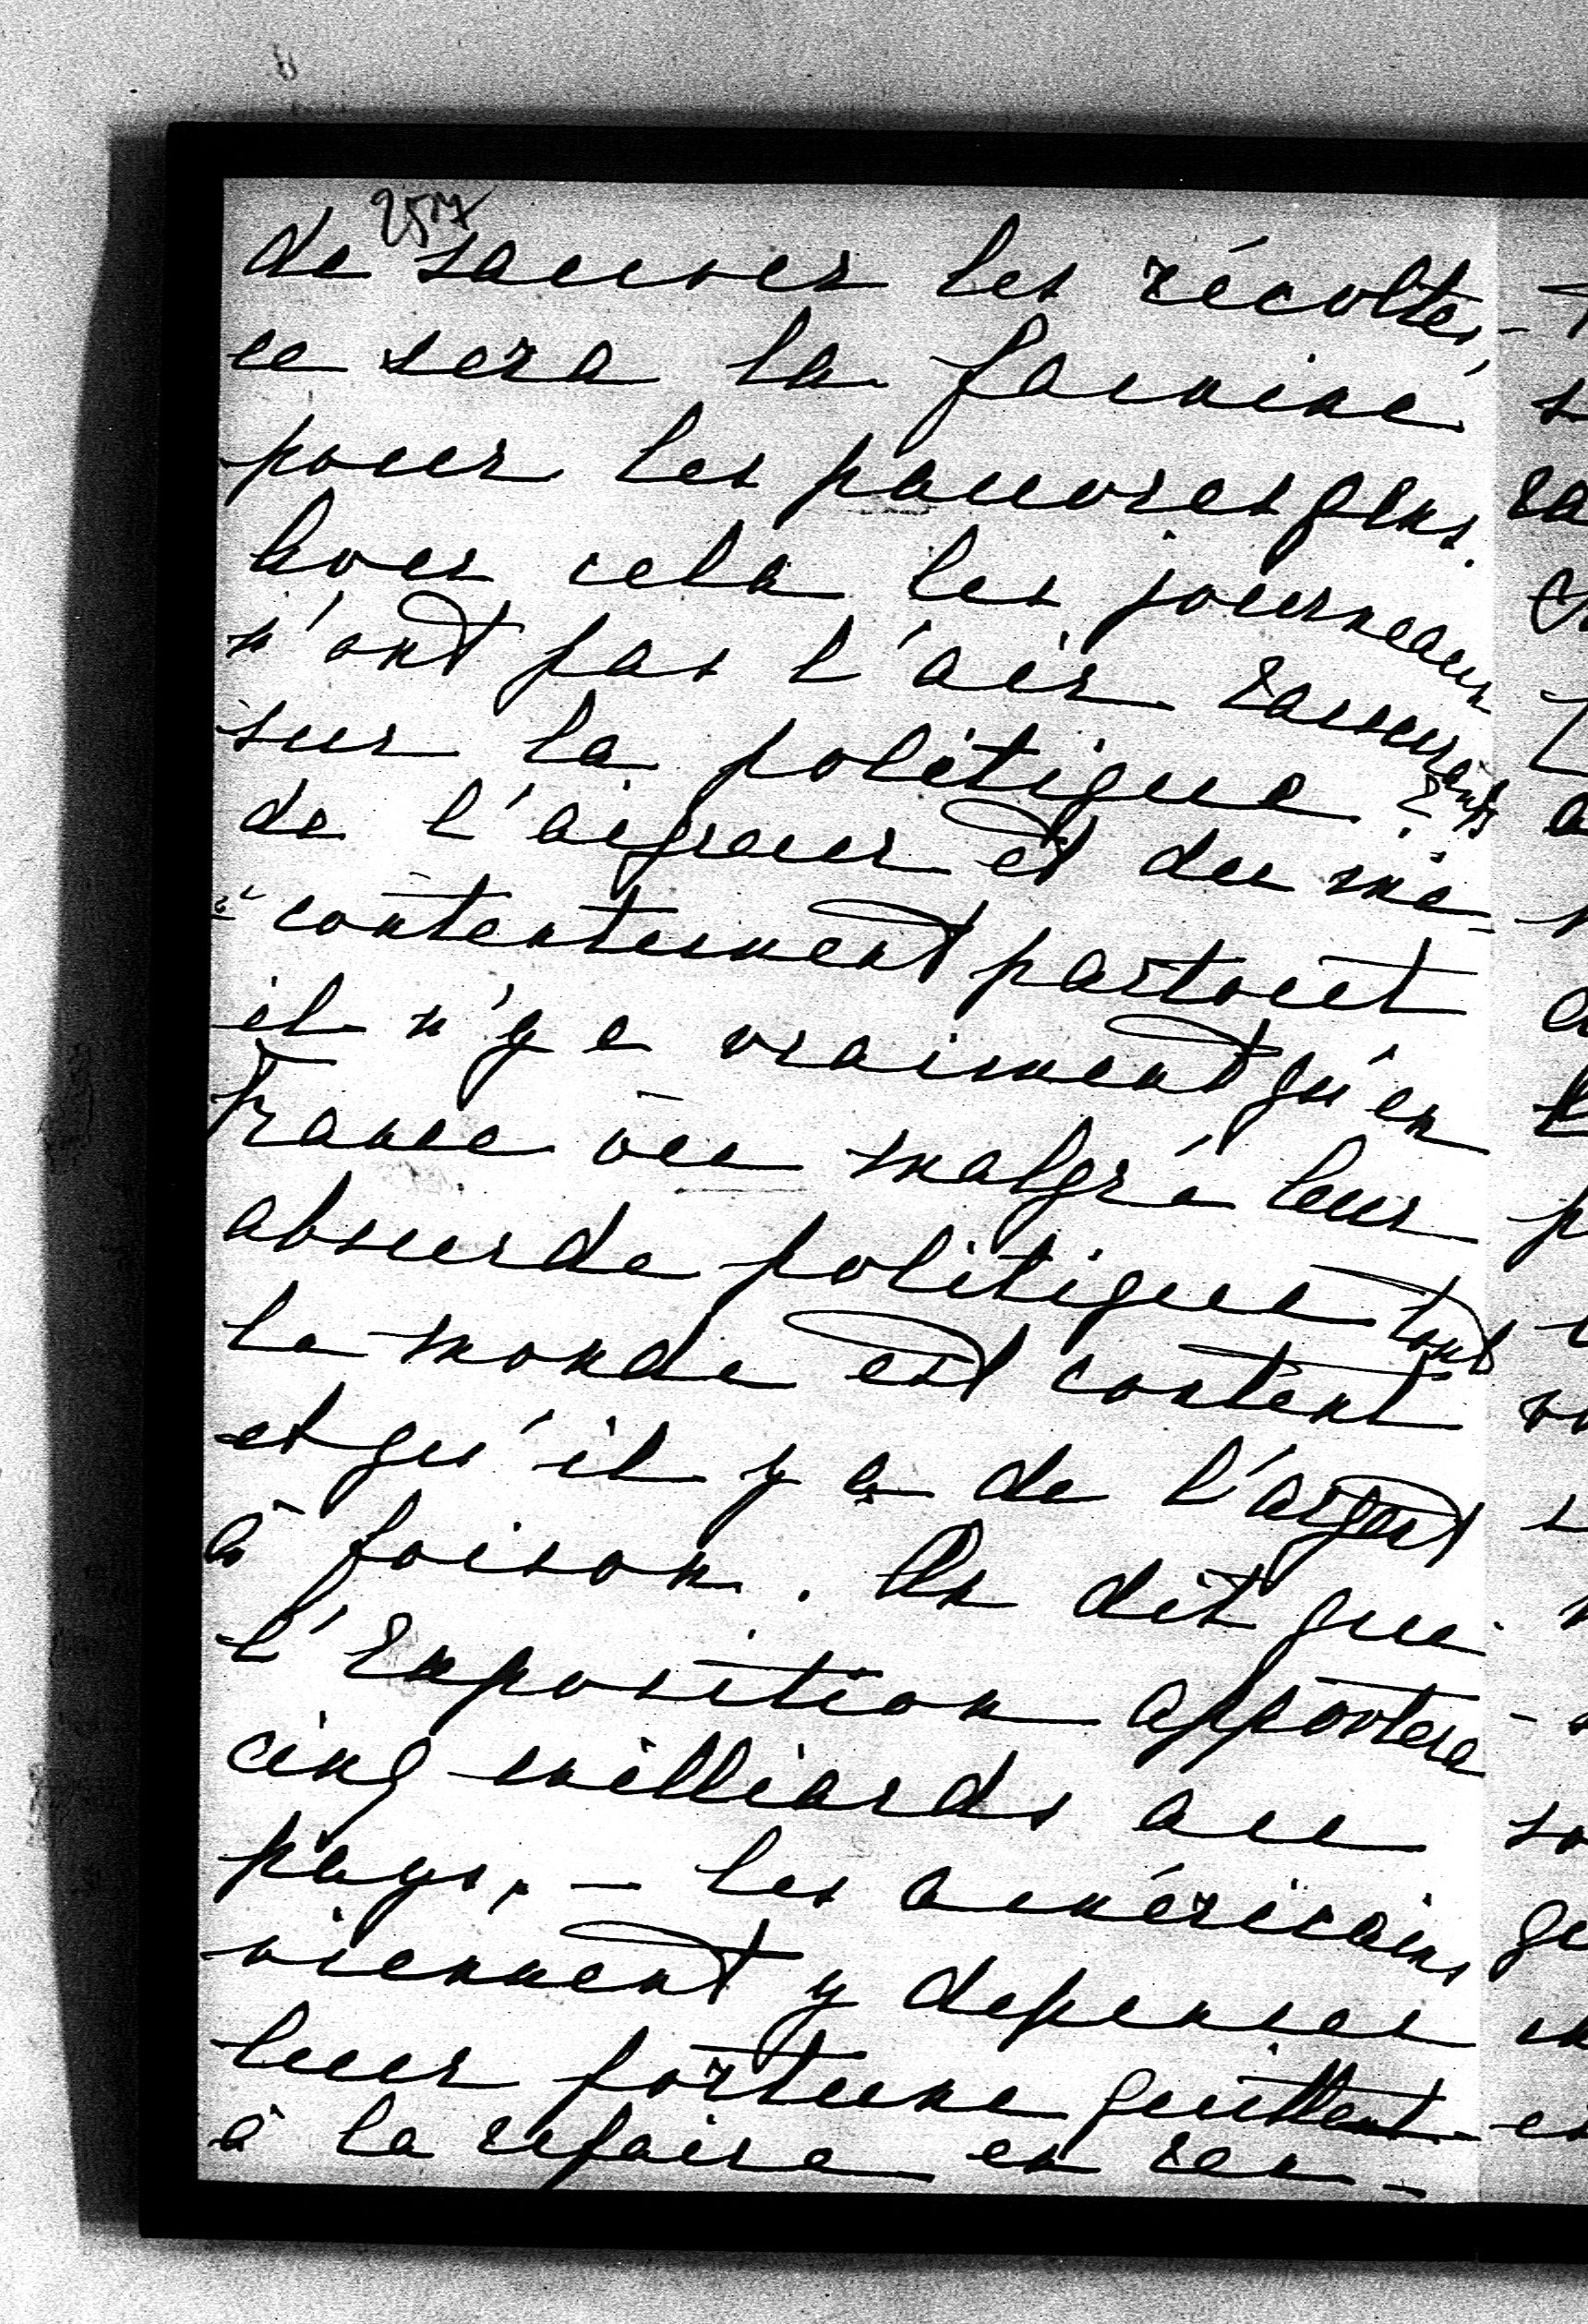 257
de sauver les récoltes,-
ce sera la famine
pour les pauvres gens.
Avec cela les journeaux
n'ont pas l'air rassurants
sur la politique ?
de l'aigreur et du mé-
contentement partout
il n'y a vraiment qu'en
France où malgré leur
absurde politique tout
le monde est content
et qu'il y a de l'argent
à foison. On dit que
l'Exposition apportera
cinq milliards au
pays, - les américains
viennent y depenser
leur fortune quittent
à la refaire en ren-